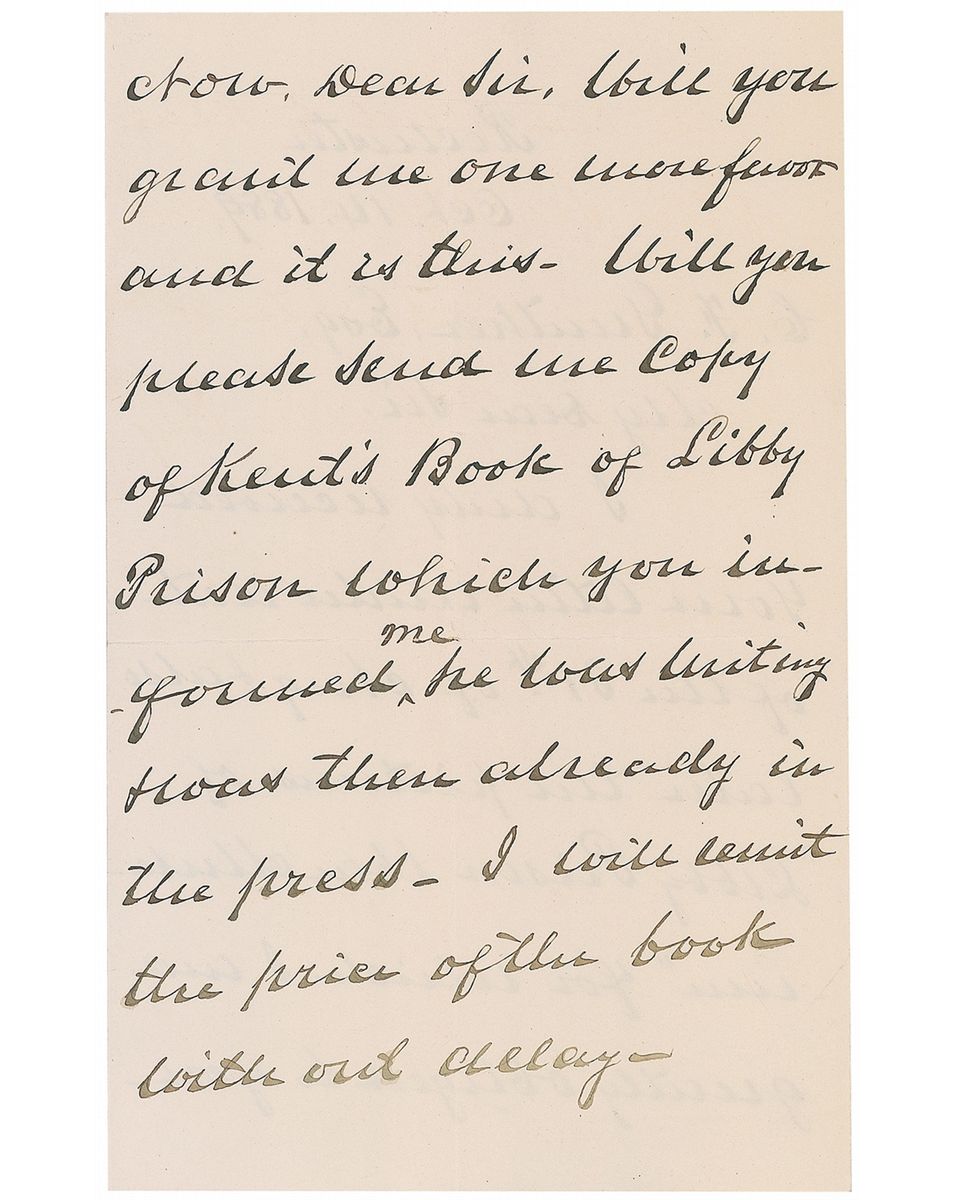 Now, Dear Sir, Will you
grant me one more favor
and it is this – Will you
please send me Copy
of Kent's Book of Libby
Prison which you in-
-formed ^me he was writing
& was then already in
the press – I will remit
the price of the book
with out delay –